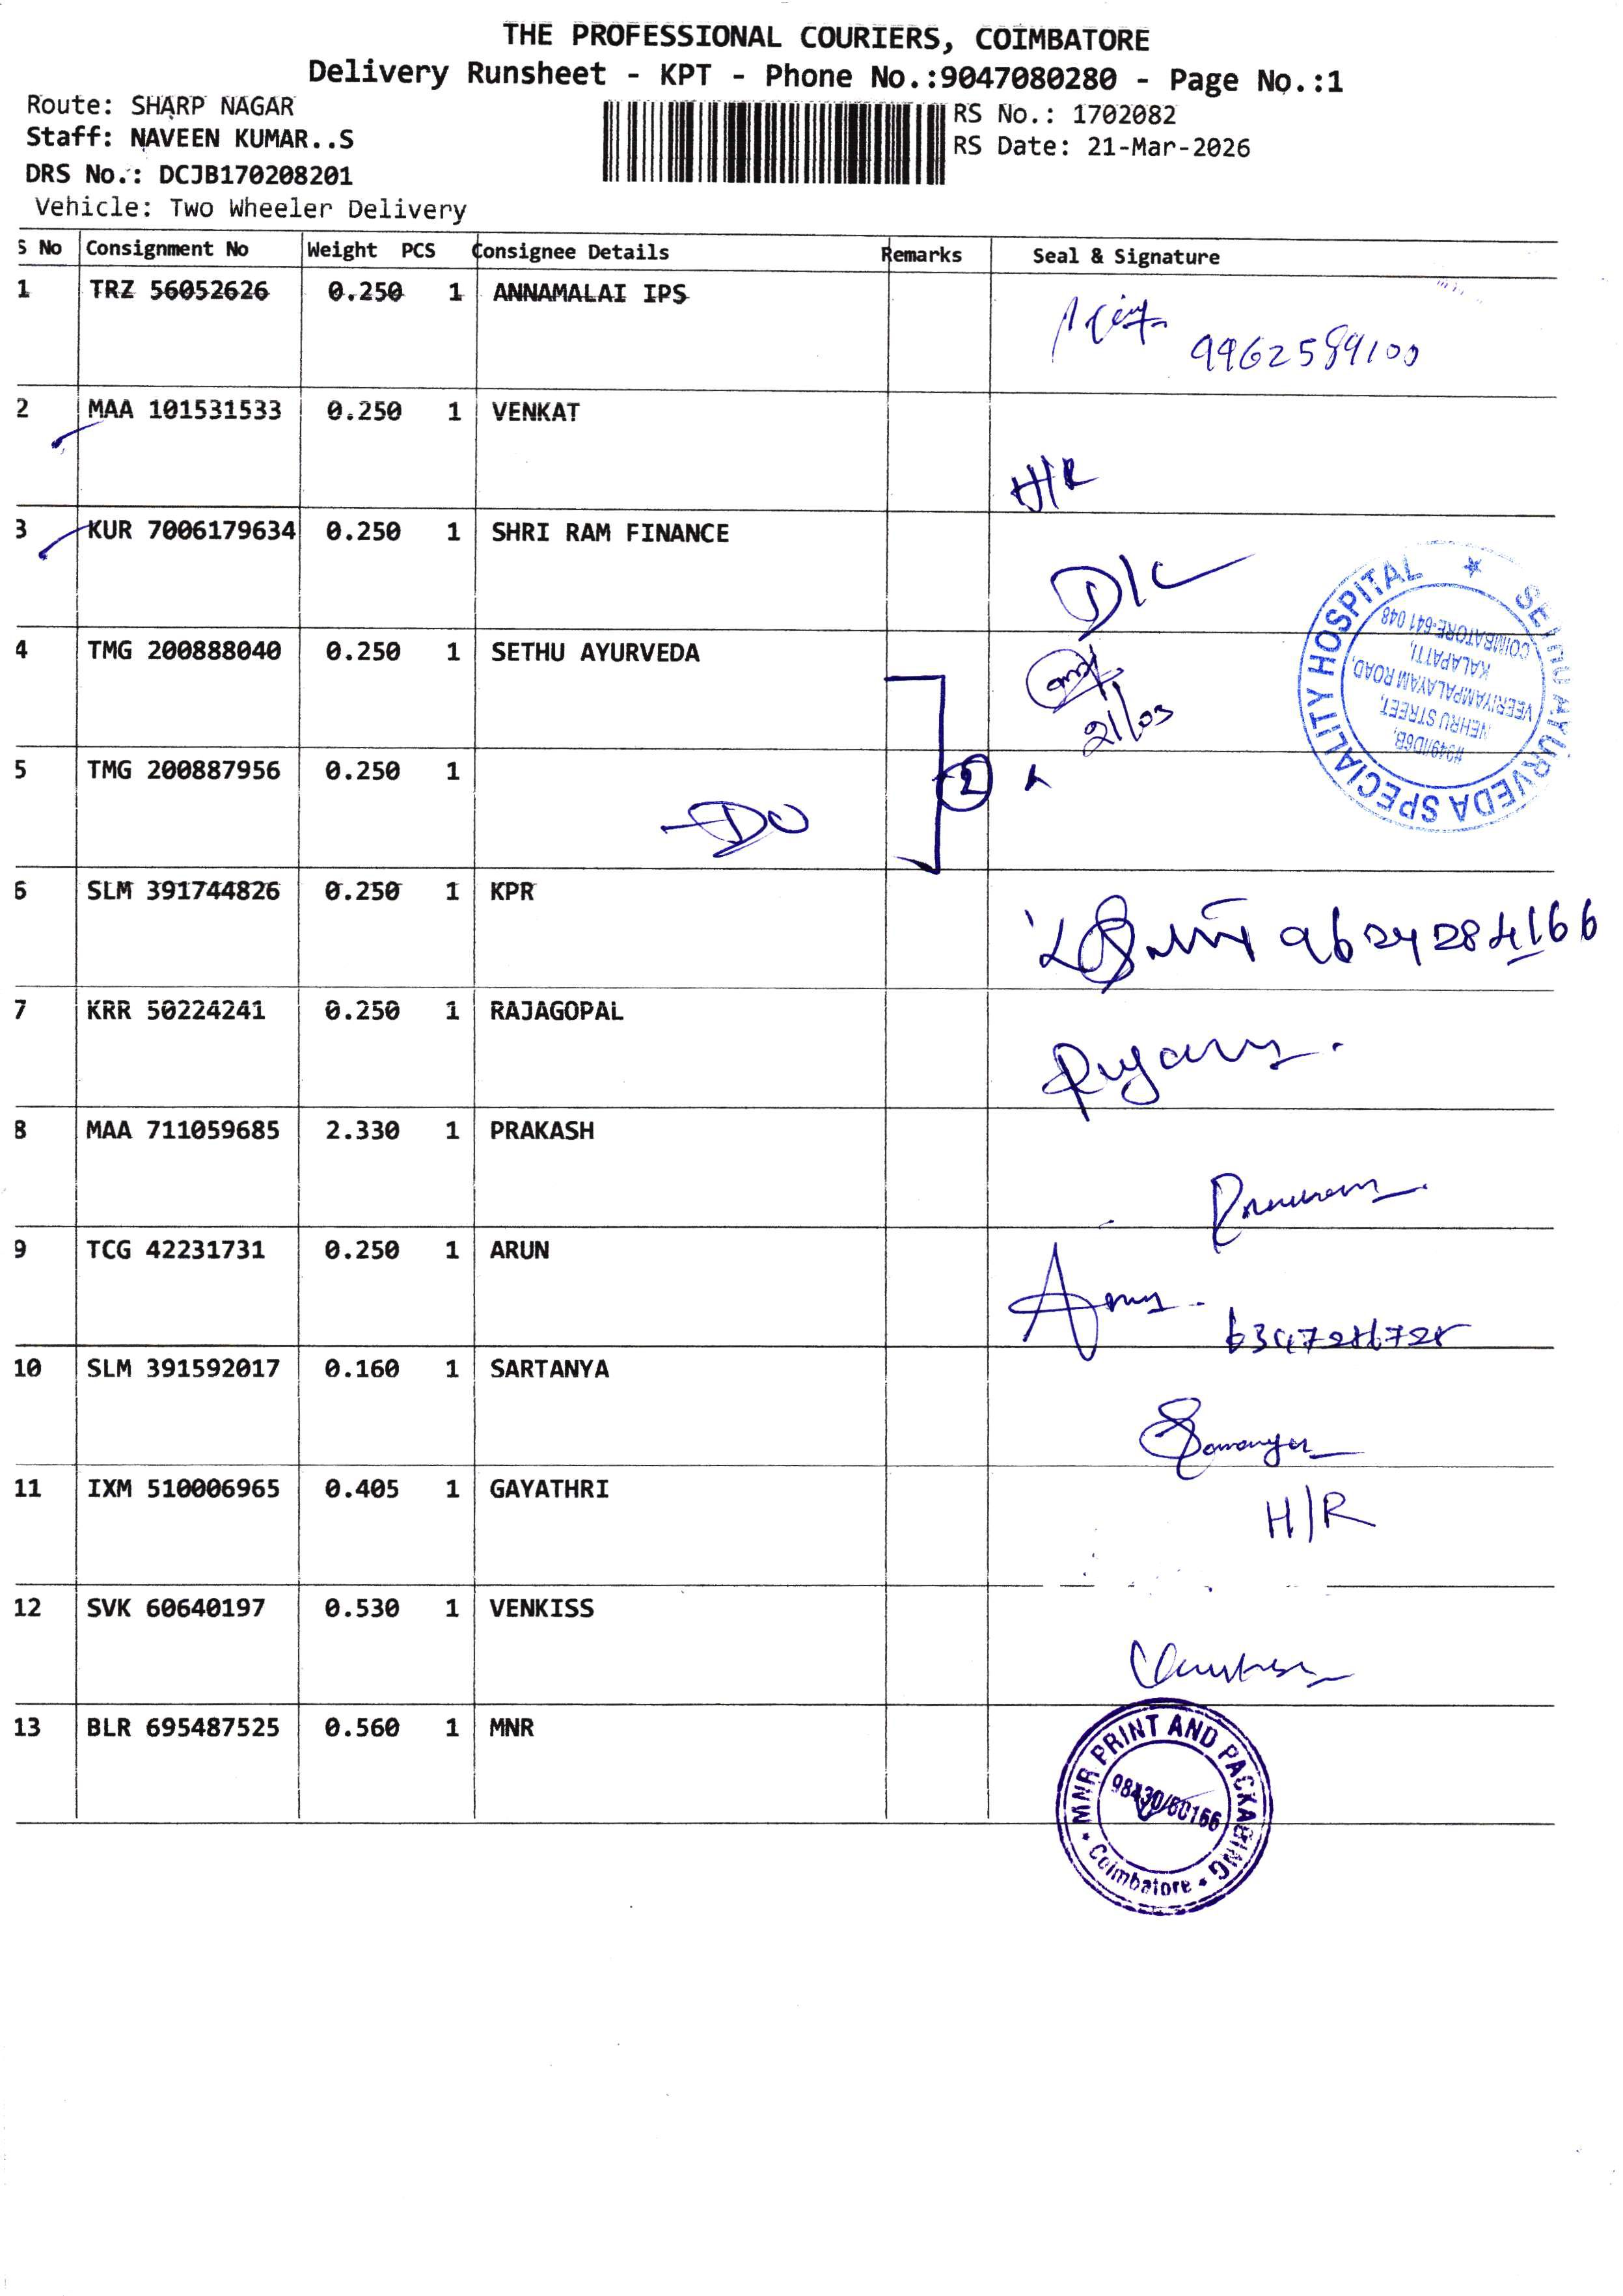 THE PROFESSIONAL COURIERS, COIMBATORE
Delivery Runsheet - KPT - Phone No.:9047080280 - Page No.:1
Route: SHARP NAGAR
Staff: NAVEEN KUMAR..S
DRS No.: DCJB170208201
Vehicle: Two Wheeler Delivery
RS No.: 1702082
RS Date: 21-Mar-2026
S No Consignment No Weight PCS Consignee Details Remarks Seal & Signature
1 TRZ 56052626 0.250 1 ANNAMALAI IPS
9962589100
2 MAA 101531533 0.250 1 VENKAT
H/R
3 KUR 7006179634 0.250 1 SHRI RAM FINANCE
D/L
4 TMG 200888040 0.250 1 SETHU AYURVEDA
21/03
SETHU AYURVEDA SPECIALITY HOSPITAL
NEHRU STREET,
VEERIYAMPALAYAM ROAD,
KALAPATTI,
COIMBATORE-641 048
5 TMG 200887956 0.250 1
2
DO
6 SLM 391744826 0.250 1 KPR
7 KRR 50224241 0.250 1 RAJAGOPAL
8 MAA 711059685 2.330 1 PRAKASH
9 TCG 42231731 0.250 1 ARUN
10 SLM 391592017 0.160 1 SARTANYA
11 IXM 510006965 0.405 1 GAYATHRI
H/R
12 SVK 60640197 0.530 1 VENKISS
13 BLR 695487525 0.560 1 MNR
MNR PRINT AND PACKAGING
98430/60166
Coimbatore